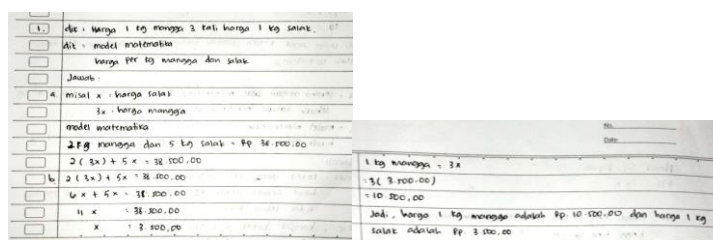 1. dik : Harga 1 kg mangga 3 kali harga 1 kg salak.
dit : model matematika
harga per kg mangga dan salak
Jawab :
a. misal x : harga salak
3x : harga mangga
model matematika
2 kg mangga dan 5 kg salak = Rp 38.500.00
2 (3x) + 5x = 38.500,00
b. 2 (3x) + 5x = 38.500,00
6x + 5x = 38.500,00
11 x = 38.500,00
x = 3.500,00
No.
Date:
1 kg mangga = 3x
= 3( 3.500.00)
= 10.500,00
Jadi, harga 1 kg mangga adalah Rp. 10.500.00 dan harga 1 kg
salak adalah Rp 3.500,00